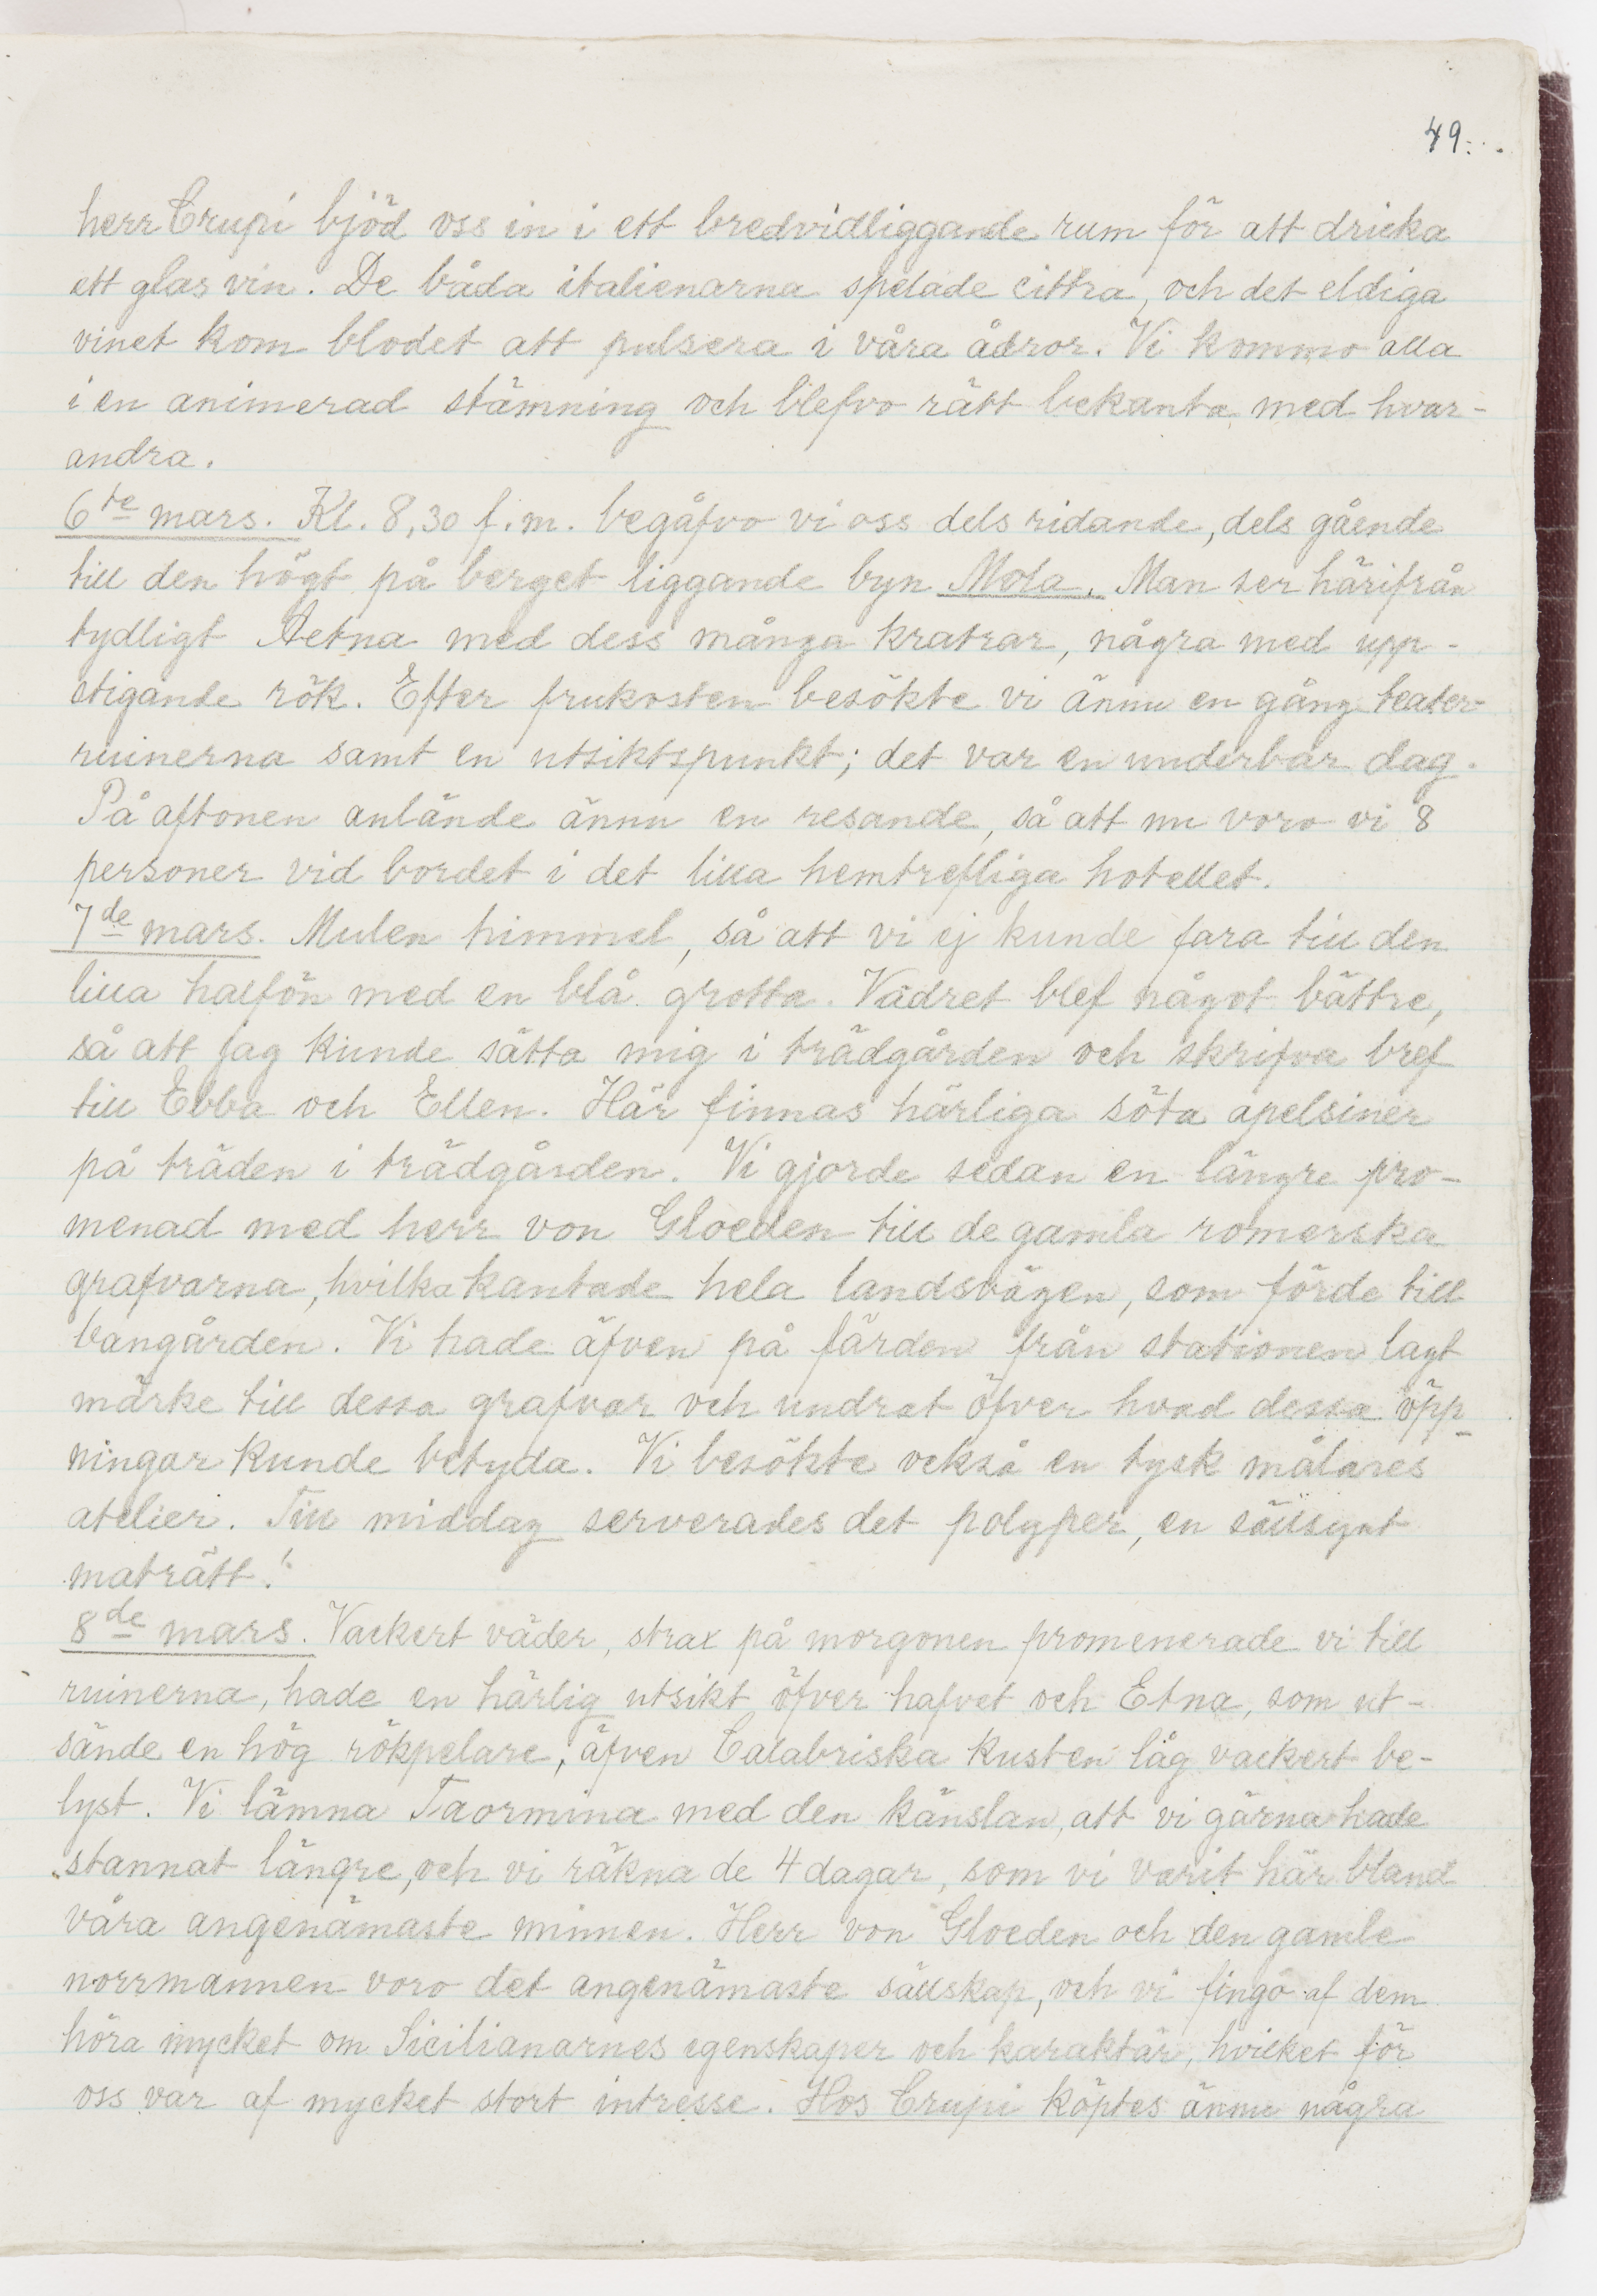 49.
herr Crupi bjöd oss in i ett bredvidliggande rum för att dricka
ett glas vin. De båda italienarna spelade cittra, och det eldiga
vinet kom blodet att pulsera i våra ådror. Vi kommo alla
i en animerad stämning och blefvo rätt bekanta med hvar-
andra.
6te mars. Kl. 8,30 f.m. begåfvo vi oss dels ridande, dels gående
till den högt på berget liggande byn Mola. Man ser härifrån
tydligt Aetna med dess många kratrar, några med upp-
stigande rök. Efter frukosten besökte vi ännu en gång teater-
ruinerna samt en utsiktspunkt; det var en underbar dag.
På aftonen anlände ännu en resande, så att nu voro vi 8
personer vid bordet i det lilla hemtrefliga hotellet.
7de mars. Mulen himmel, så att vi ej kunde fara till den
lilla halfön med en blå grotta. Vädret blef något bättre,
så att jag kunde sätta mig i trädgården och skrifva bref
till Ebba och Ellen. Här finnas härliga söta apelsiner
på träden i trädgården. Vi gjorde sedan en längre pro-
menad med herr von Gloeden till de gamla romerska
grafvarna, hvilka kantade hela landsvägen, som förde till
bangården. Vi hade äfven på färden från stationen lagt
märke till dessa grafvar och undrat öfver hvad dessa öpp-
ningar kunde betyda. Vi besökte också en tysk målares
atelier. Till middag serverades det polyper, en sällsynt
maträtt!
8de mars. Vackert väder, strax på morgonen promenerade vi till
ruinerna, hade en härlig utsikt öfver hafvet och Etna, som ut-
sände en hög rökpelare, äfven Calabriska kusten låg vackert be-
lyst. Vi lämna Taormina med den känslan, att vi gärna hade
stannat längre, och vi räkna de 4 dagar, som vi varit här bland
våra angenämaste minnen. Herr von Gloeden och den gamle
norrmannen voro det angenämaste sällskap, och vi fingo af dem
höra mycket om Sicilianarnes egenskaper och karaktär, hvilket för
oss var af mycket stort intresse. Hos Crupi köptes ännu några